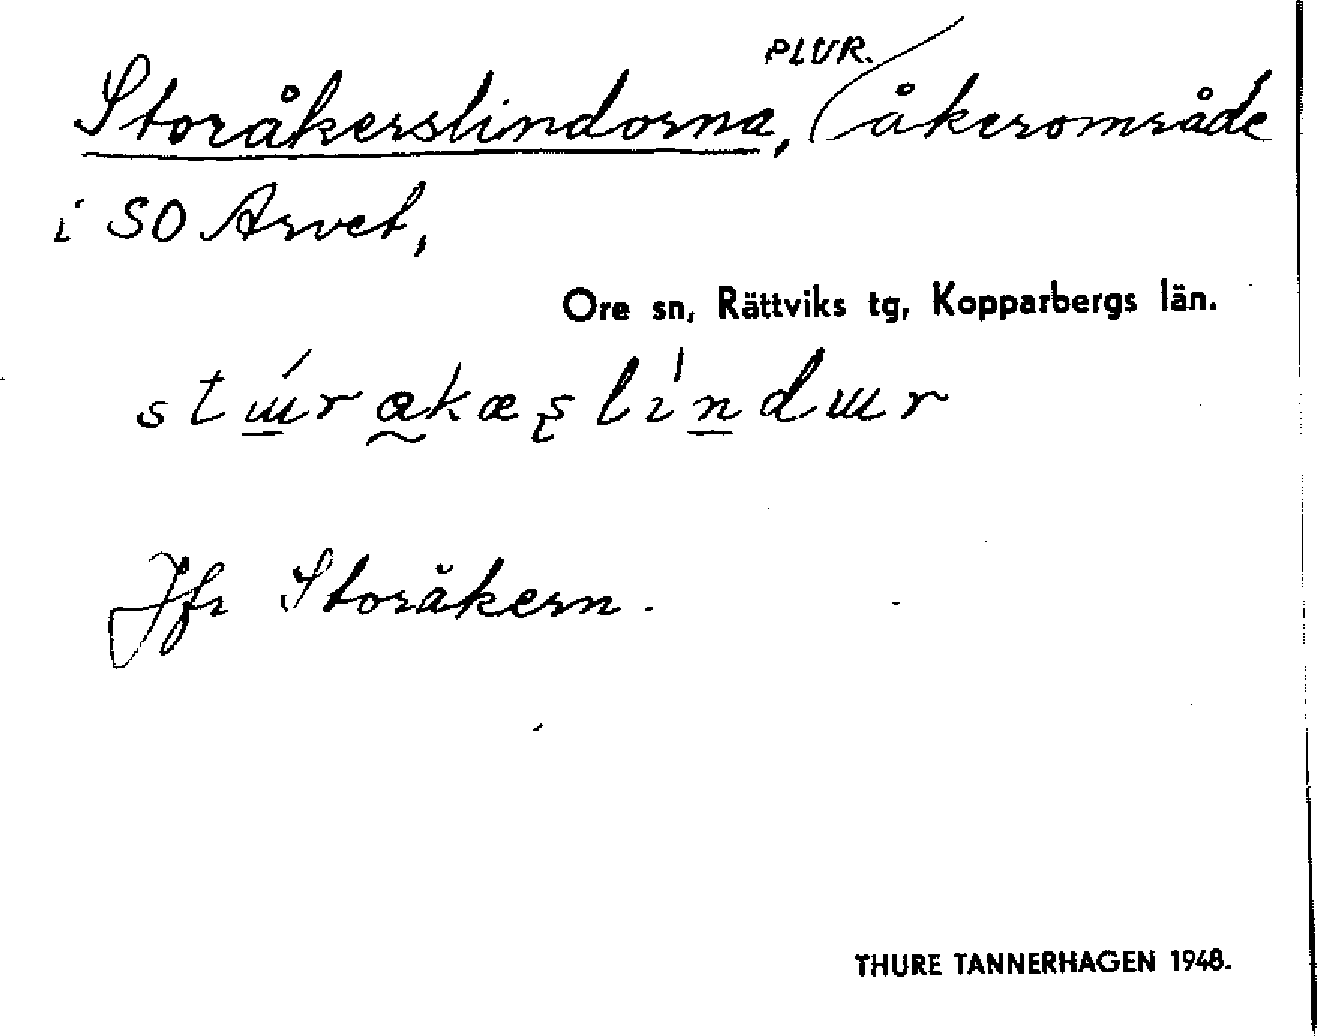 Storåkerslindorna, PLUR. åkerområde
i SO Arvet,
Ore sn, Rättviks tg, Kopparbergs län.
Jfr Storåkern.
THURE TANNERHAGEN 1948.